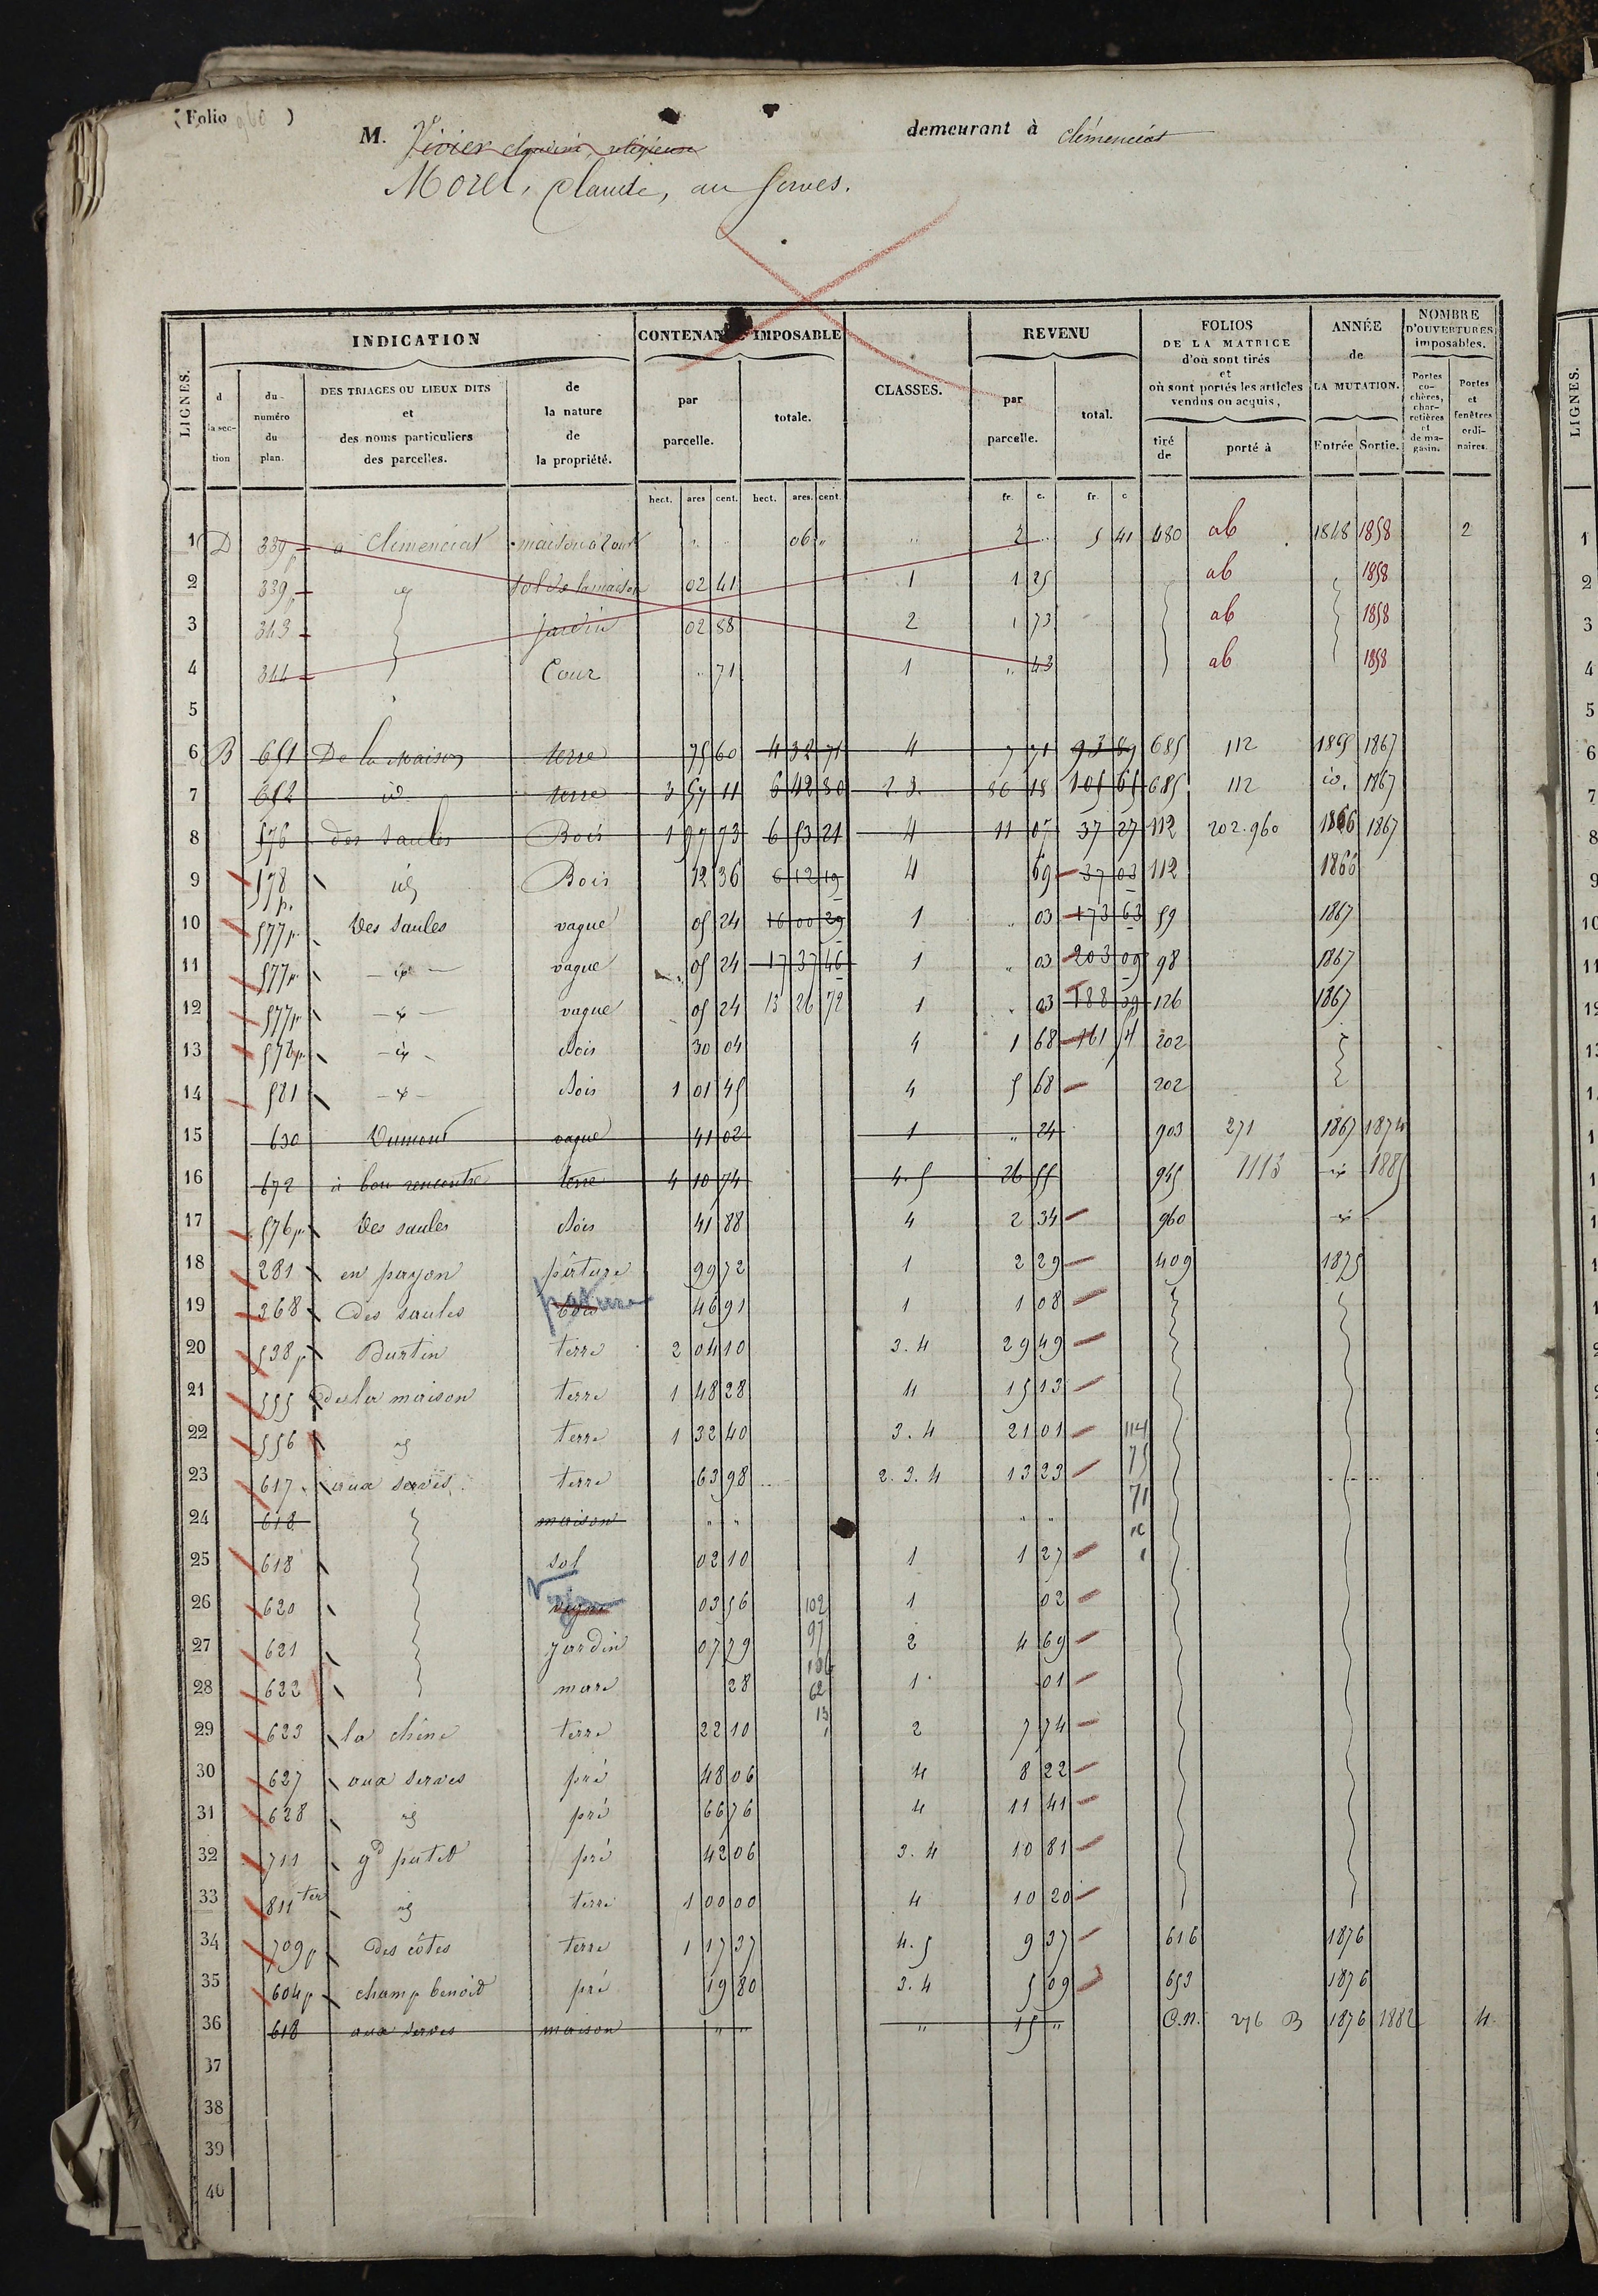 (Folio )
M. Vivier religieuse demeurant à Clémenciat
Morel, Claude, au Serves.
LIGNES. INDICATION CONTENANCE IMPOSABLE CLASSES. REVENU FOLIOS DE LA MATRICE d'où sont tirés et où sont portés les articles vendus ou acquis, ANNÉE de LA MUTATION. NOMBRE D'OUVERTURES imposables.
d la section du numéro du plan. DES TRIAGES OU LIEUX DITS et des noms particuliers des parcelles. de la nature de la propriété. par parcelle. totale. par parcelle. total. tiré de porté à Entrée Sortie. Portes cochères, charretières et de magasin. Portes et fenêtres ordinaires.
hect. ares cent. hect. ares. cent. fr. c. fr. c
1 D 339p à Clémenciat maison 06 " " 2 " 5 41 480 ab 1848 1858 2
2 339p id sol de la maison 02 41 1 1 25 ab 1858
3 343 jardin 02 88 2 1 73 ab 1858
4 344 Cour " 71 1 " 43 ab 1858
5
6 B 651 De la Maison terre 75 60 4 32 71 4 7 71 93 89 685 112 1865 1867
7 652 id terre 3 57 11 6 42 80 2.3. 86 18 105 65 685 112 id. 1867
8 576 des Saules Bois 1 97 73 6 53 21 4 11 07 37 27 112 202.960 1866 1867
9 578 p. id Bois 12 36 6 12 19 4 69 37 03 112 1866
10 577p. Des Saules vague 05 24 16 00 29 1 " 03 173 63 59 1867
11 577p. - id - vague 05 24 17 37 46 1 " 03 203 09 98 1867
12 577p. - id - vague 05 24 13 26 72 1 " 03 188 39 126 1867
13 576p. - id - Bois 30 04 4 1 68 161 202
14 581 - id - Bois 1 01 45 4 5 68 202
15 630 Dumont vague 41 02 1 " 24 903 271 1867 1874
16 672 à bon rencontre terre 4 10 74 4.5 26 55 945 1113 id 1885
17 576p. Des saules Bois 41 88 4 2 34 960 id
18 281 en payon pâture 99 72 1 2 29 409 1875
19 368 des saules bois pature 46 91 1 1 08
20 538p Burtin terre 2 04 10 3.4 29 49
21 555 de la maison terre 1 48 28 4 15 13
22 556 id terre 1 32 40 3.4 21 01 114
23 617 aux serves terre 63 98 2.3.4 13 23 75
71
24 618 maison " " " "
25 618 sol 02 10 1 1 27
26 620 vigne 03 56 102 1 02
27 621 jardin 07 79 97 2 4 69
28 622 mare 28 62 1 01
29 623 la chêne terre 22 10 13 2 7 74
30 627 aux serves pré 48 06 4 8 22
31 628 id pré 66 76 4 11 41
32 711 gd patet pré 42 06 3.4 10 81
33 811 ter id terre 1 00 00 4 10 20
34 709p des côtes terre 1 17 37 4.5 9 37 616 1876
35 604p champ benoid pré 19 80 3.4 5 09 653 1876
36 618 aux serves maison " " " 15 " C.N. 276 B 1876 1882 4
37
38
39
40
LIGNES.
1
2
3
4
5
6
7
8
9
10
11